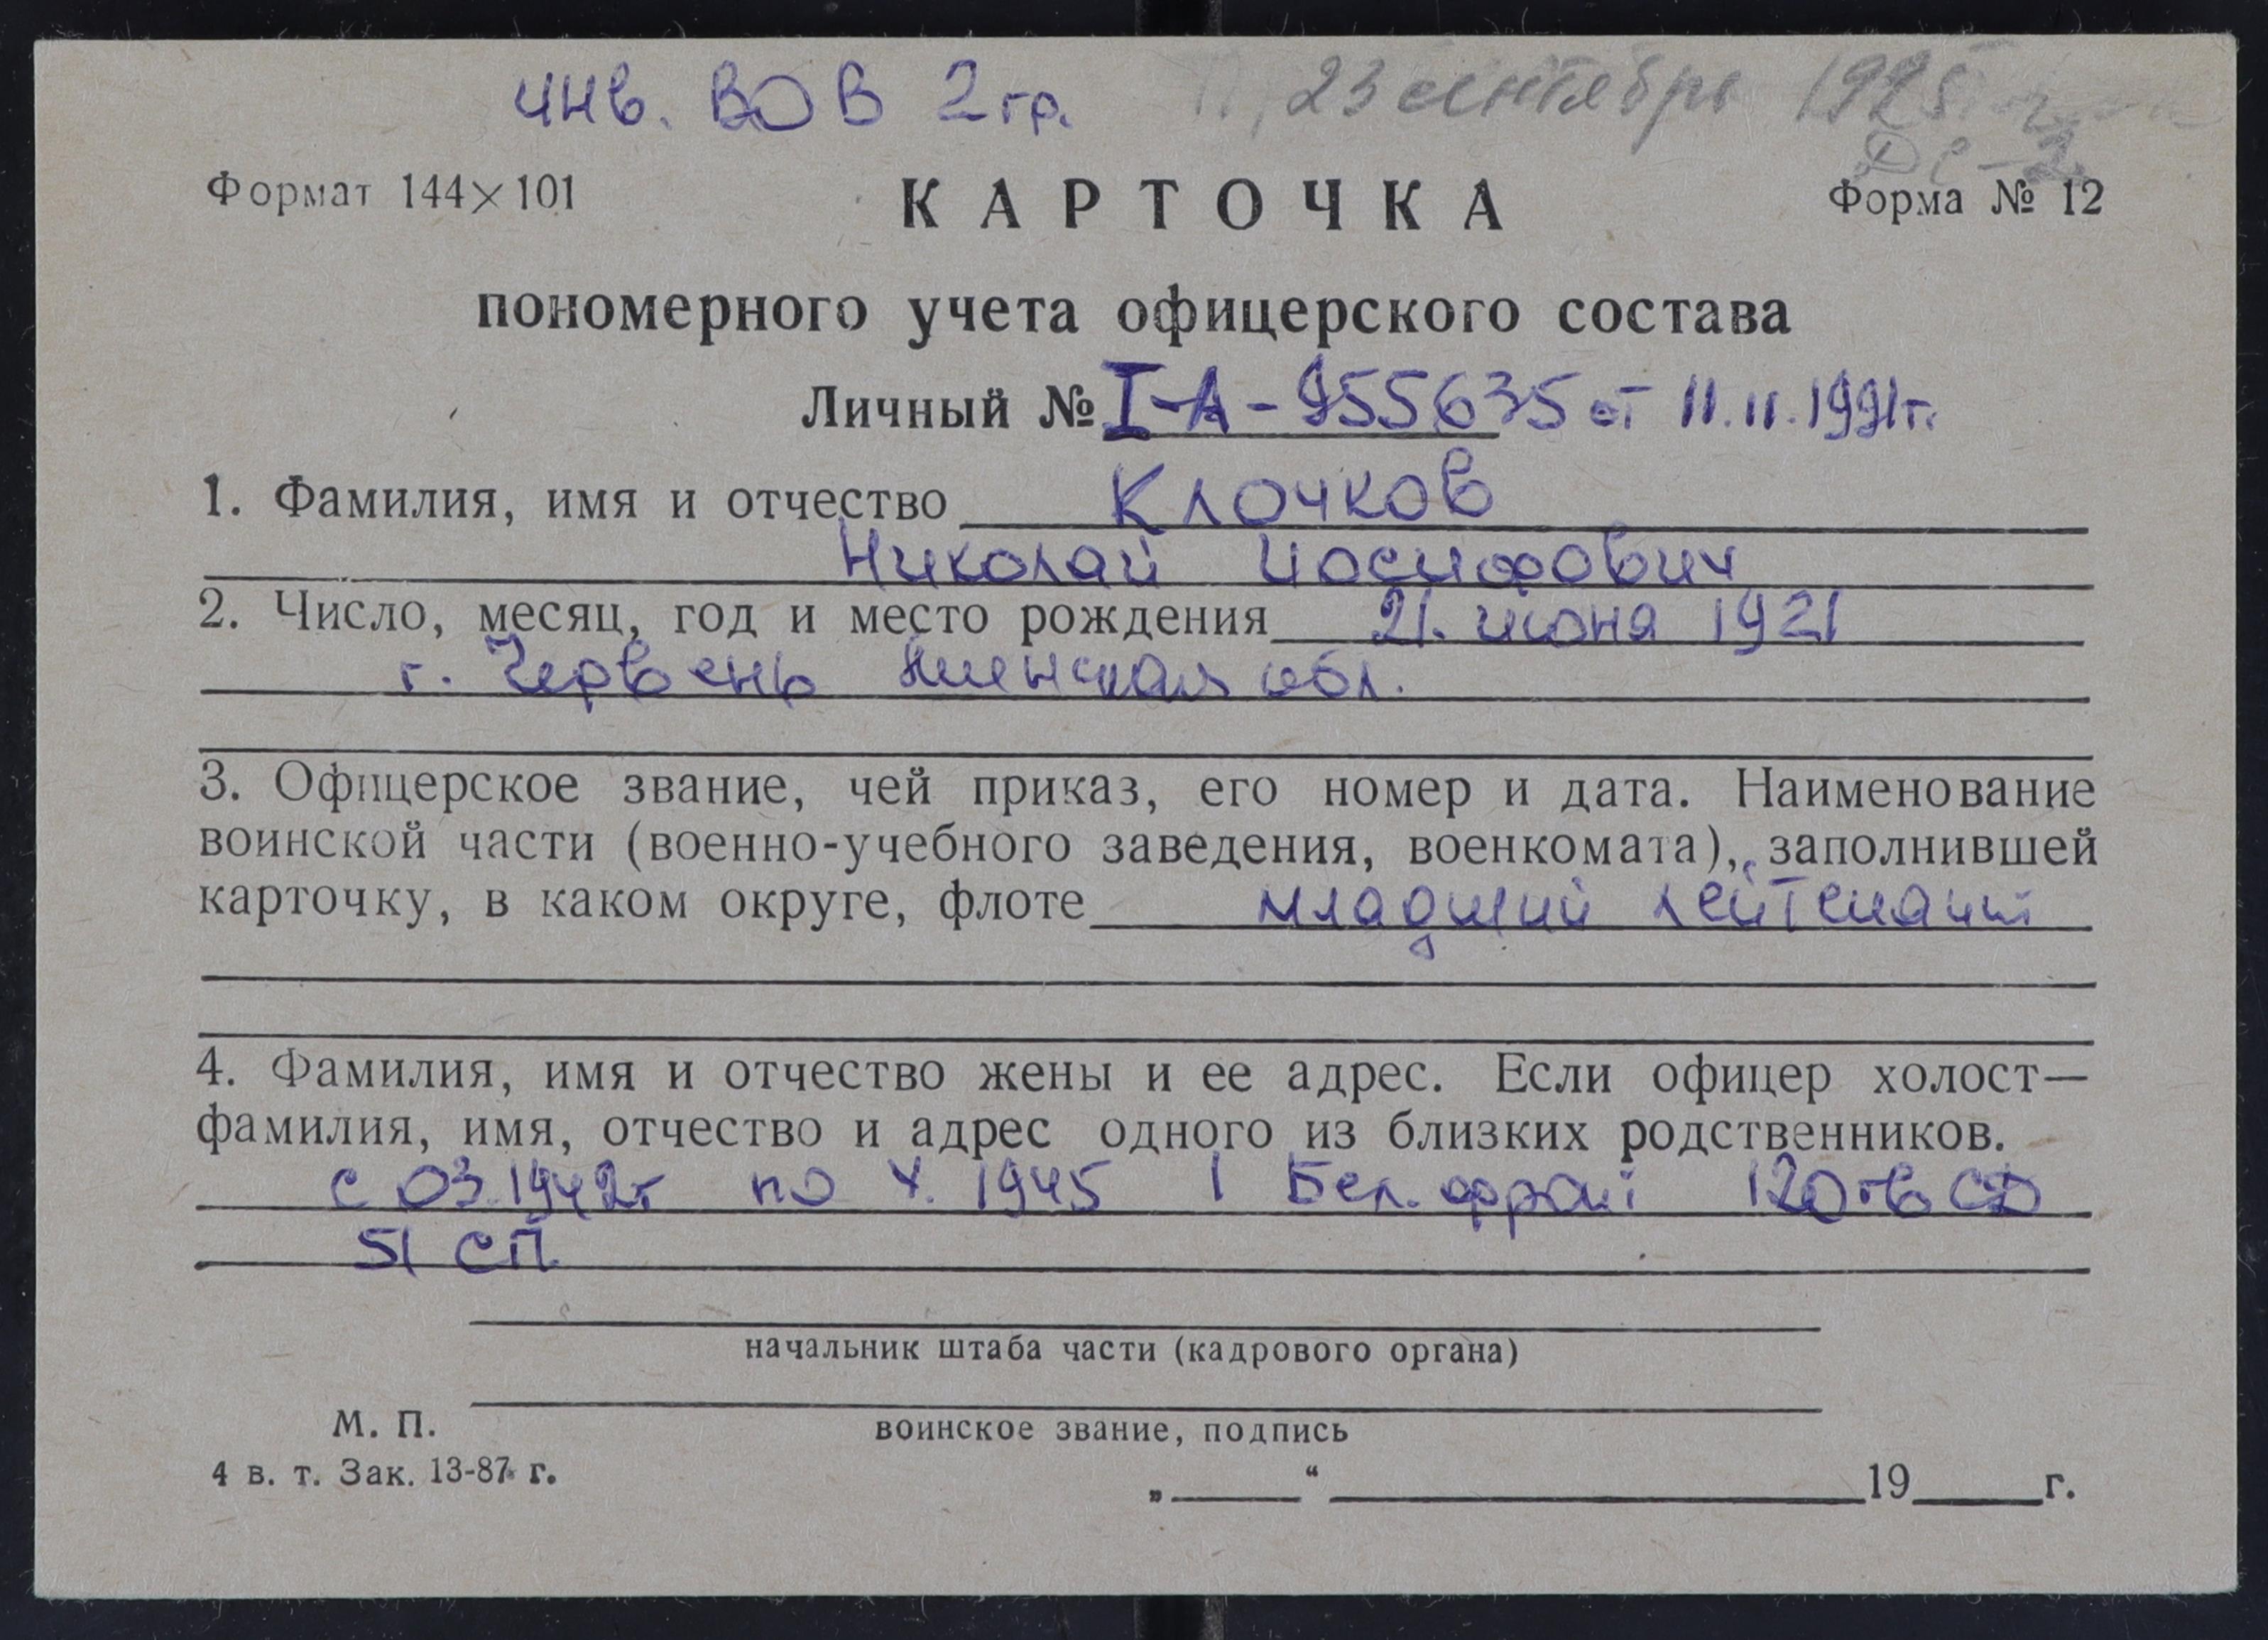 инв. ВОВ 2 гр. 23 сентябрь 1925 г.
Формат 144×101
КАРТОЧКА
Форма № 12
пономерного учета офицерского состава
Личный № I-А-955635 от 11.11.1991г.
1. Фамилия, имя и отчество Клочков
Николай Иосифович
2. Число, месяц, год и место рождения 21. июня 1921
г. Червень Минская обл.
3. Офицерское звание, чей приказ, его номер и дата. Наименование
воинской части (военно-учебного заведения, военкомата), заполнившей
карточку, в каком округе, флоте младший лейтенант
4. Фамилия, имя и отчество жены и ее адрес. Если офицер холост—
фамилия, имя, отчество и адрес одного из близких родственников.
с 03.1942г по V. 1945 1 Бел. фронт 120 гв СД
51 СП
начальник штаба части (кадрового органа)
М. П.
воинское звание, подпись
4 в. т. Зак. 13-87 г.
„ “ 19 г.